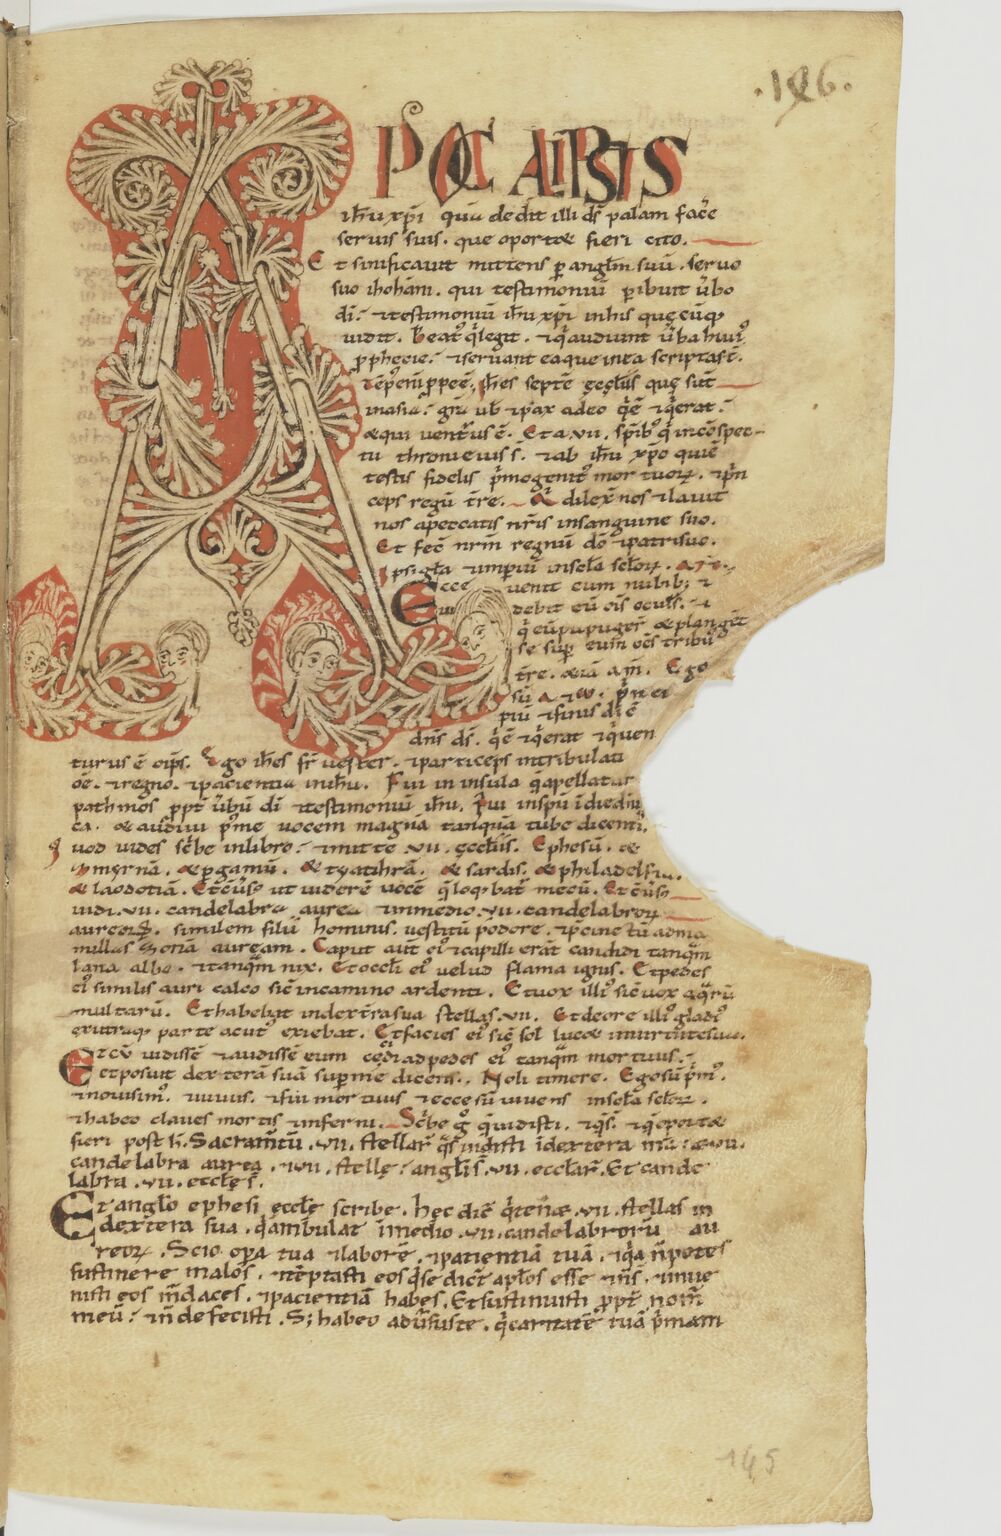 .126.
APOCALIPSIS
ih̅u xp̅i quā dedit illi dś palam fac̄e
seruis suis. que oportet fieri cito.
Et significauit mittens ꝑ angl̅m suū. seruo
suo iohanni. qui testimoniū ꝑibuit ūbo
dī. ⁊testimoniū ih̅u xp̅i inhis quę cūq;
uidit. Beat᷒ q̇legit. ⁊q̇audiunt ūba hui᷒
ꝓphecie. ⁊seruant eaque inea scriptast̄.
Iohes septē ęcclīis quę sūt
inasia. gr̄a uob̄ ⁊pax abeo q̇ē ⁊q̇erat.
⁊qui uentur᷒ē. Et a .vii. sp̄ib᷒ q̇ incōspec-
tu throni ei᷒ s̄. ⁊ab ih̅u xpo quiē
testis fidelis p̄mogenit᷒ mortuoꝝ. ⁊p̄n
ceps regū t̄re. Qī dilex̄ nos ⁊lauit
nos apeccatis nr̄is insanguine suo.
Et fec̄ nrm̄ regnū dō ⁊patrisuo.
Ipsi gl̄a ⁊imperiū insc̄la sc̄loꝝ. am̄.
Ecce uenit cum nubib; ⁊
uidebit eū oīs ocul᷒. ⁊
q̇ eūpupuger̄ ⁊plangēt
se suꝑ eum oēs tribu᷒
t̄re. ⁊iā am̄. Ego
sū A ⁊ω. p̄nci
piū ⁊finis dic̄
dn̄s ds̄. q̇ē ⁊q̇erat ⁊q̇uen
turus ē oīps̄. Ego ioh̄es fr̄ uester. ⁊particeps intribulati
oē. ⁊regno. ⁊paciencia inih̅u. Fui in insula q̄apellatur
pathmos ꝓpt̄ ūbū dī ⁊testimoniū ih̅u. Fui insp̄u īdiedn̄i
ca. ⁊ audiui p̄me uocem magnā tanquā tube dicenti᷒.
Quod uides sc̄be inlibro. ⁊mitte .vii. ęccl̄iis. Ephosū. ⁊
smyrnā. ⁊pgamū. ⁊tyatihrā. ⁊ sardis. ⁊philadelfia.
⁊ laodotiā. Et cūsus ut uiderē uocē q̄loq;bat̄ mecū. Et cūsus
uidi .vii. candelabra aurea ⁊inmedio .vii. candelabroꝝ
aureoꝝ. similem filiū hominis. uestitū podore. ⁊p̄cinctū adma
millas zonā auręam. Caput aūt ei᷒ ⁊capilli erāt candidi tanq̄m
lana alba. ⁊tanq̄m nix. Et occl̄i ei᷒ uelud flama ignis. Et pedes
ei᷒ similis auri calco sic̄ incamino ardenti. Et uox illi᷒ sic̄ uox aq̄rū
multarū. Et habebat indext̄rasua stellas .vii. Et deore illi᷒ gladi᷒
exutraq; parte acut᷒ exiebat. Et facies ei᷒ sic̄ sol lucet inuirtutesua.
Et cū uidissē ⁊audissē eum cęcidi adpedes ei᷒ tanq̄m mortuus.
Et posuit dexterā suā suꝑme dicens. Noli timere. Ego sū p̄m᷒.
⁊nouisim᷒. ⁊uiuus. ⁊fui mortuus ⁊ecce sū uiuens insc̄la sc̄loꝝ.
⁊habeo claues mortis ⁊inferni. Sc̄be g̊ q̄uidisti. ⁊q̄s̄. ⁊q̄oportet
fieri post h̄. Sacram̄tū .vii. stellar̄ q̄s uidisti īdextera mā. ⁊ .vii.
candelabra aurea. .vii. stellę angl̄i s̄ .vii. eccl̄ar̄. Et cande
labra .vii. ecclēs̄.
Et anglo ephesi eccl̄e scribe. hec dic̄ q̇tenet .vii. stellas in
dextera sua. q̇ambulat īmedio .vii. candelabrorū au
reoꝝ. Scio opa tua ⁊laborē. ⁊patientiā tuā. ⁊q̄a n̄potes
sustinere malos. ⁊tēptasti eos q̇se dic̄t apl̄os esse ⁊n̄s̄. ⁊inue
nisti eos m̄daces. ⁊pacientiā habes. Et sustinuisti ꝓpt̄ nom̄
meū. ⁊n̄ defecisti. S; habeo adūsuste. q̄caritatē tuā p̄mam
145